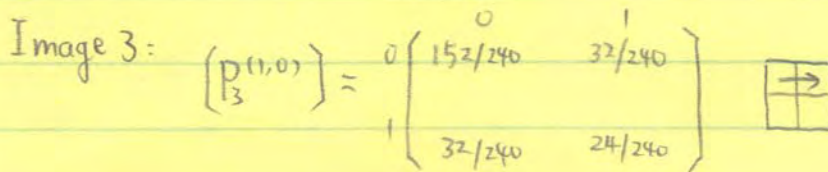 0 1
Image 3: [P₃^(1,0)] = 0 152/240 32/240
1 32/240 24/240